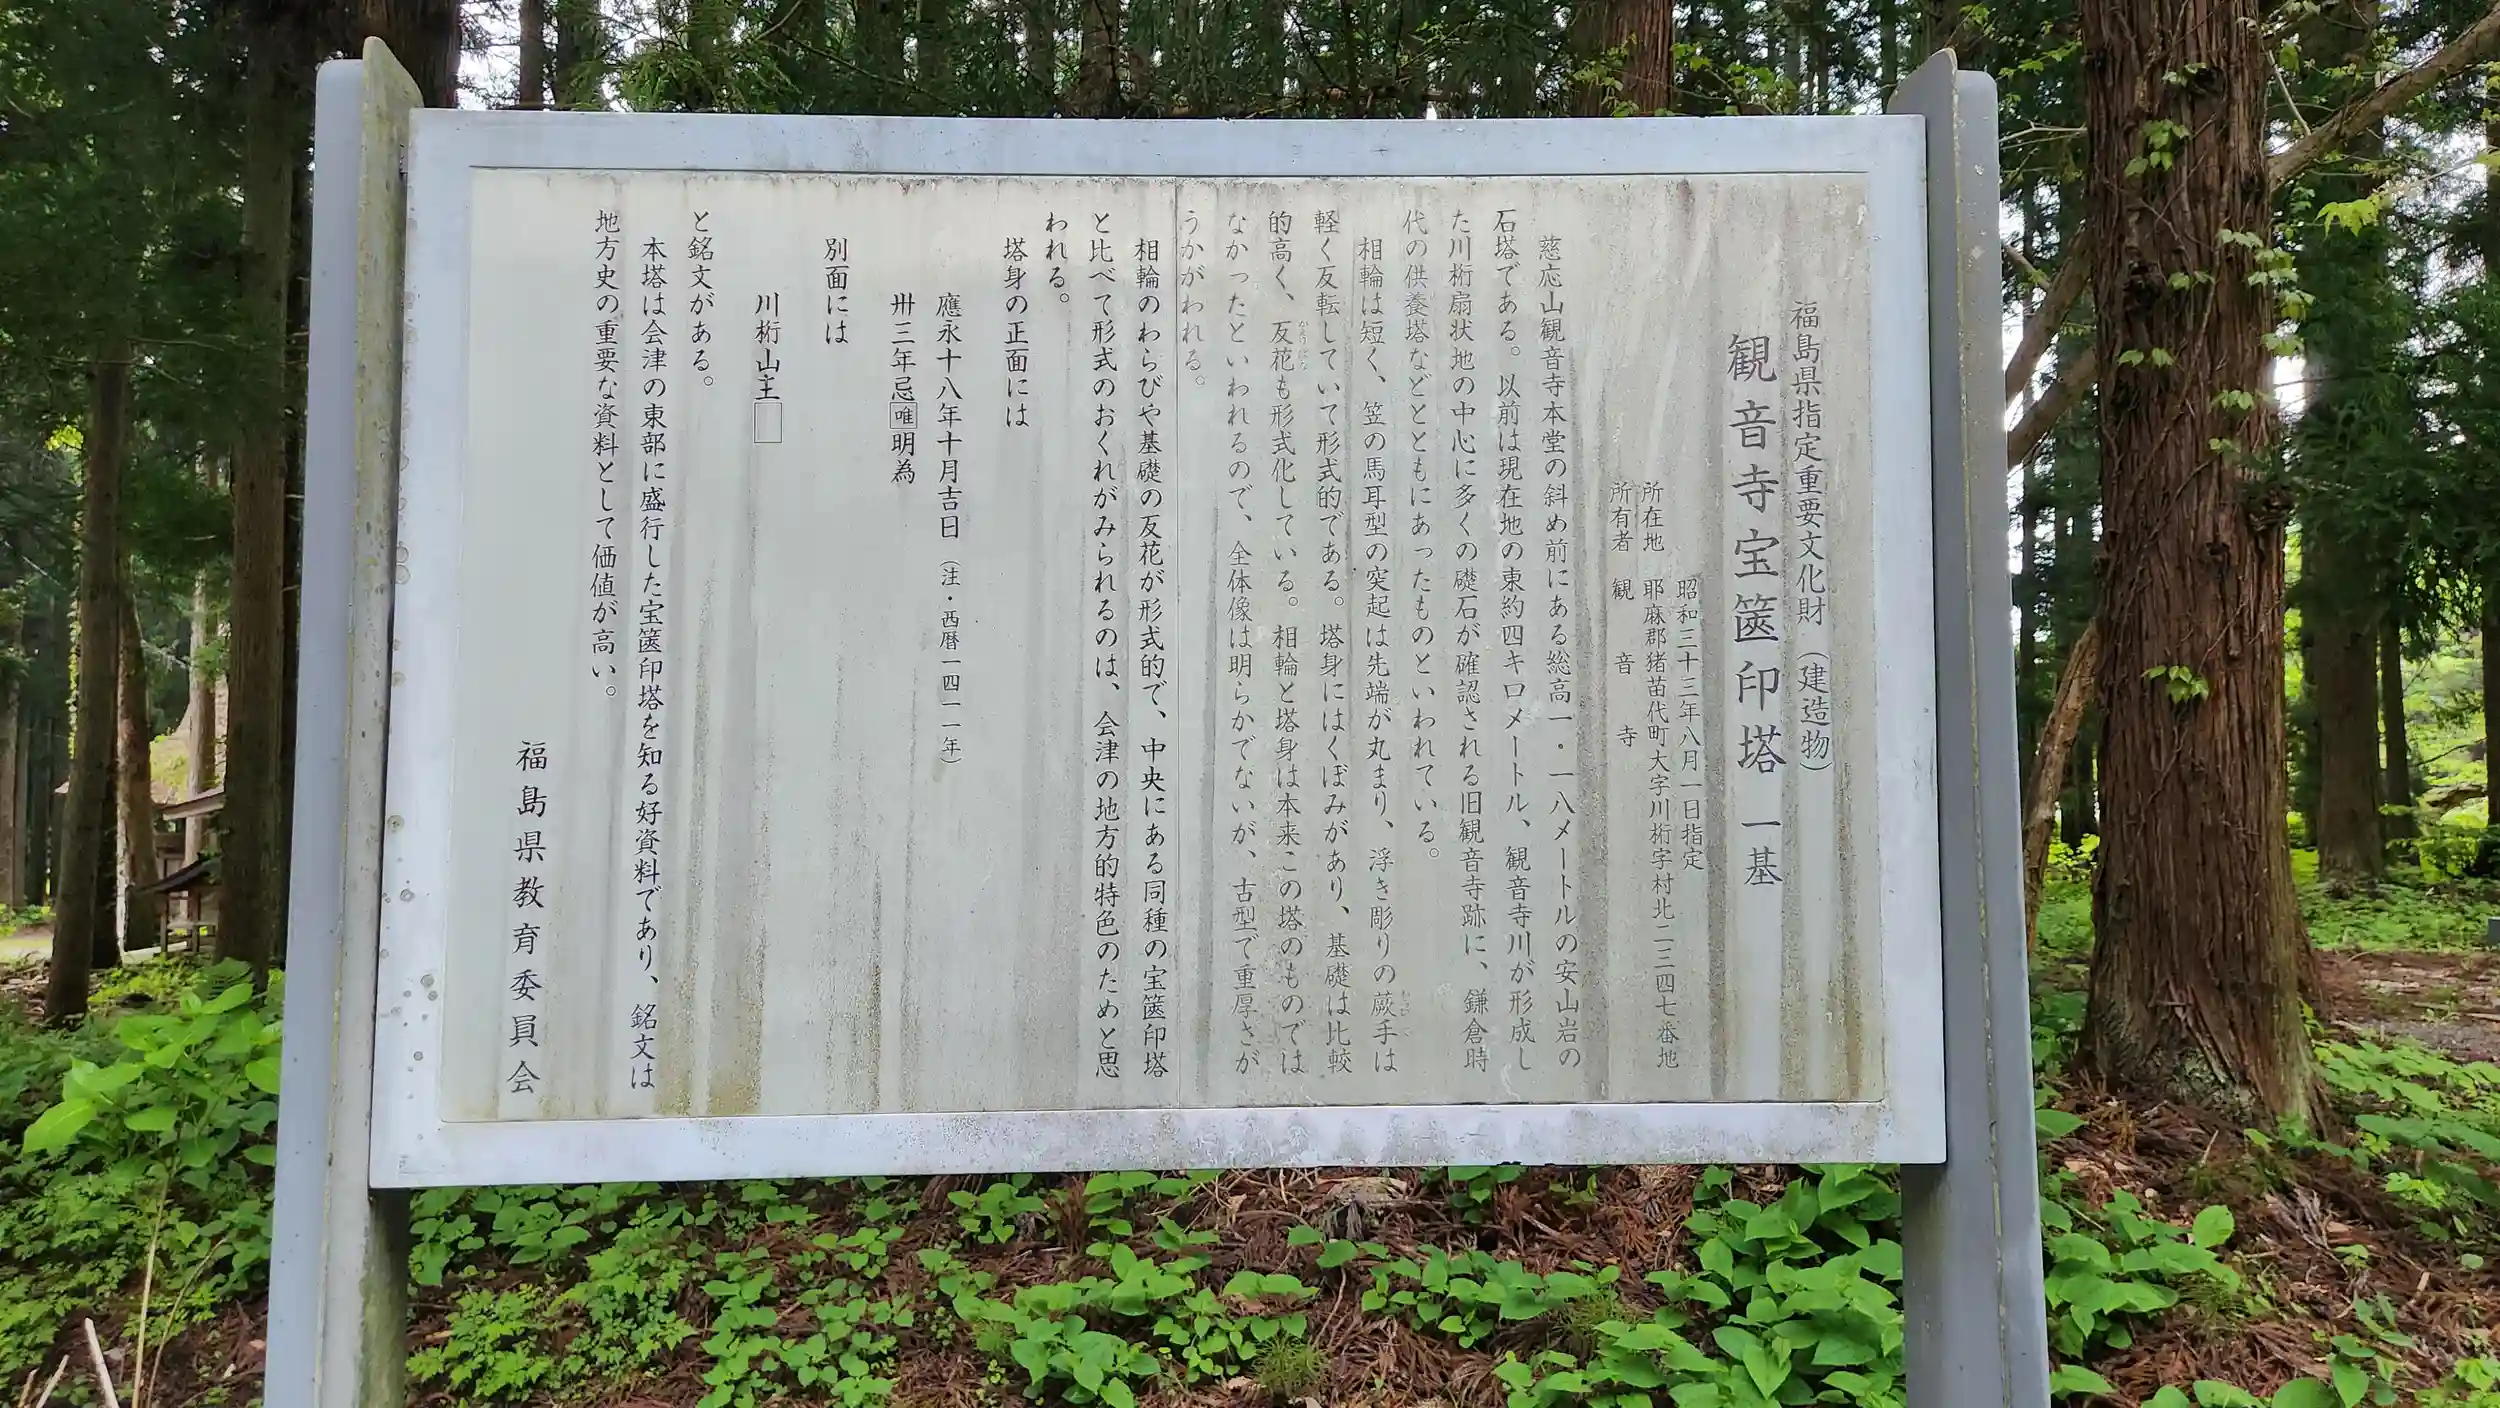 福島県指定重要文化財（建造物）
観音寺宝篋印塔 一基
昭和三十三年八月一日指定
所在地 耶麻郡猪苗代町大字川桁字村北二三四七番地
所有者 観音寺
慈応山観音寺本堂の斜め前にある総高一・一八メートルの安山岩の
石塔である。以前は現在地の東約四キロメートル、観音寺川が形成し
た川桁扇状地の中心に多くの礎石が確認される旧観音寺跡に、鎌倉時
代の供養塔などとともにあったものといわれている。
相輪は短く、笠の馬耳型の突起は先端が丸まり、浮き彫りの蕨手は
軽く反転していて形式的である。塔身にはくぼみがあり、基礎は比較
的高く、反花も形式化している。相輪と塔身は本来この塔のものでは
なかったといわれるので、全体像は明らかでないが、古型で重厚さが
うかがわれる。
相輪のわらびや基礎の反花が形式的で、中央にある同種の宝篋印塔
と比べて形式のおくれがみられるのは、会津の地方的特色のためと思
われる。
塔身の正面には
應永十八年十月吉日（注・西暦一四一一年）
卅三年忌唯明為
別面には
川桁山主□
と銘文がある。
本塔は会津の東部に盛行した宝篋印塔を知る好資料であり、銘文は
地方史の重要な資料として価値が高い。
福島県教育委員会